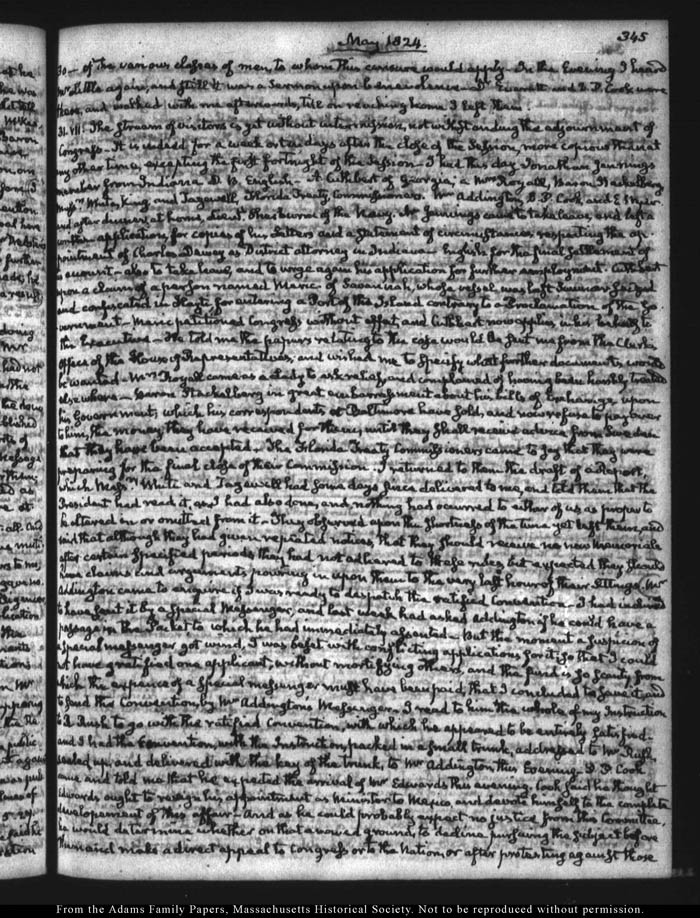 May 1824.
345
30— of the various classes of men, to whom this censure would apply— In the Evening I heard
Mr Little again, and still it was a Sermon upon benevolence— Everett and D. P. Cook were
there, and walked with me afterwards, till on reaching home I left them.
31. VII: The stream of visitors is yet without intermission, notwithstanding the adjournment of
Congress— It is indeed for a week or ten days after the close of the Session, more copious than at
any other time, excepting the first fortnight of the Session— I had this day Jonathan Jennings
member from Indiana D. B. English— A Cuthbert of Georgia, a Mrs Royall, Baron Stackelberg
Messrs White, King and Tazewell, Florida Treaty, Commissioners. Mr Addington, D. P. Cook, and
and after dinner at home, Lieutt of the Navy. Mr Jennings came to take leave, and left a
written application, for copies of his Letters and a Statement of circumstances respecting the ap-
pointment of Charles Dewey as District attorney in Indiana— English for the final settlement of
his account— also to take leave, and to urge again his application for further employment. Cuthbert
upon a claim of a person named Marie of Savannah, whose vessel was last Summer seized
and confiscated in Hayti for entering a Port of the Island contrary to a Proclamation of the Go-
vernment— Marie petitioned Congress without effect, and Cuthbert now applies in his behalf to
the Executive— He told me the papers relating to the case would be sent me from the Clerks
Office of the House of Representatives, and wished me to specify what further documents would
be wanted— Mrs Royall came as a lady to ask relief, and complained of having been harshly treated
elsewhere— Baron Stackelberg in great embarrassment about his bills of Exchange upon
his Government, which his correspondents at Baltimore have sold, and now refuse to pay over
to him, the money they have received for them, until they shall receive advice from Sweden
that they have been accepted— The Florida Treaty Commissioners came to say that they were
preparing for the final close of their Commission. I returned to them the draft of a Report,
which Messrs White and Tazewell had some days since delivered to me, and told them that the
President had read it, as I had also done, and nothing had occurred to either of us as proper to
be altered in or omitted from it— They observed upon the shortness of the time yet left them, and
said that although they had given repeated notices that they should receive no new memorials
after certain specified periods, they had not adhered to those rules, but expected they should
have claims and arguments pouring in upon them to the very last hour of their sittings. Mr
Addington came to enquire if I was ready to despatch the ratified Convention— I had inclined
to have sent it by a special Messenger, and last week had asked Addington if he could have a
passage in the Packet to which he had immediately assented— But the moment a suspicion of
a special messenger got wind, I was beset with conflicting applications for it; so that I could
not have gratified one applicant, without mortifying others, and the fund is so scanty from
which the expence of a special messenger must have been paid, that I concluded to save it, and
to send this Convention by Mr Addington's Messenger. I read to him the whole of my Instruction
to R Rush to go with the ratified Convention, with which he appeared to be entirely satisfied—
and I had the Convention, with the Instruction, packed in a small trunk, addressed to Mr Rush,
sealed up, and delivered with the key of the trunk, to Mr Addington, this Evening. D. P. Cook
came and told me that he expected the arrival of Mr Edwards this evening. Cook said he thought
Edwards ought to resign his appointment as Minister to Mexico, and devote himself to the complete
developement of this affair— And as he could probably expect no justice from this Committee,
he would determine whether on that avowed ground, to decline pursuing the subject before
them and make a direct appeal to Congress or to the Nation, or after protesting against those
From the Adams Family Papers, Massachusetts Historical Society. Not to be reproduced without permission.